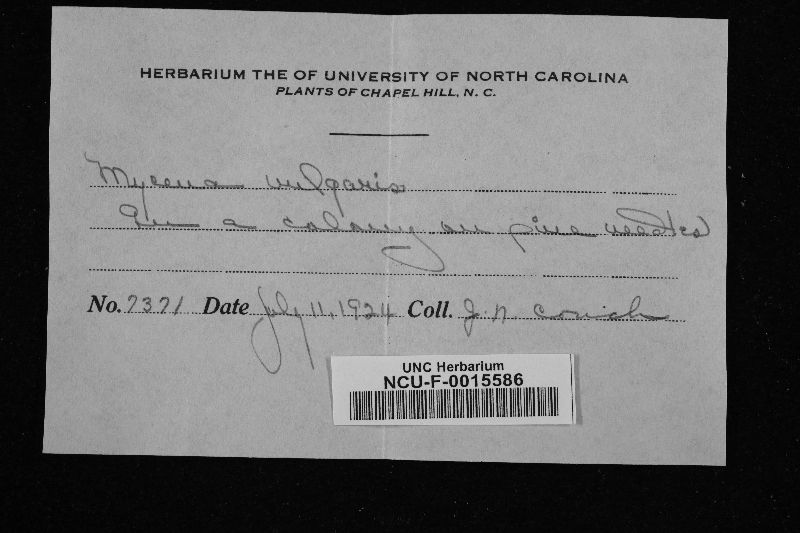 HERBARIUM THE OF UNIVERSITY OF NORTH CAROLINA
PLANTS OF CHAPEL HILL, N. C.
Mycena vulgaris
In a colony on pine needles
No. 7371 Date July 11, 1924 Coll. J. N. Couch
UNC Herbarium
NCU-F-0015586